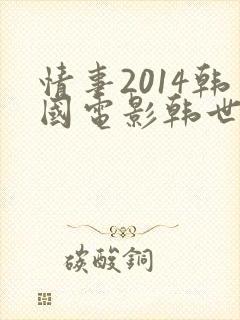 情事2014韩
國電影韩世
碳酸銅